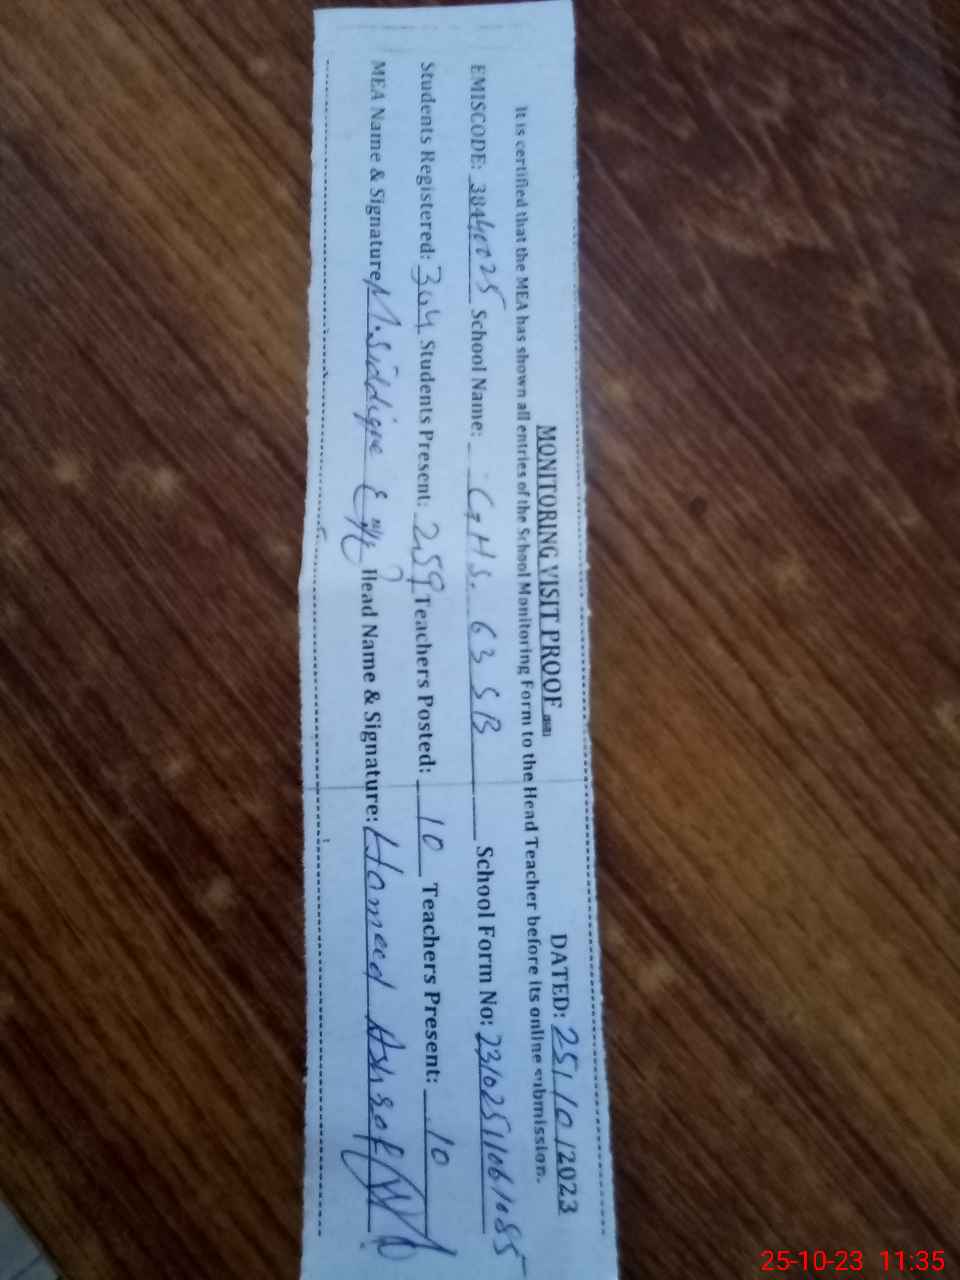 MONITORING VISIT PROOF DATED: 25/10/2023
It is certified that the MEA has shown all entries of the School Monitoring Form to the Head Teacher before its online submission.
EMISCODE: 38440025 School Name: GHS. 63 SB School Form No: 23102511061085
Students Registered: 304 Students Present: 259 Teachers Posted: 10 Teachers Present: 10
MEA Name & Signature: M. Siddique Head Name & Signature: Hameed Ashraf
25-10-23 11:35